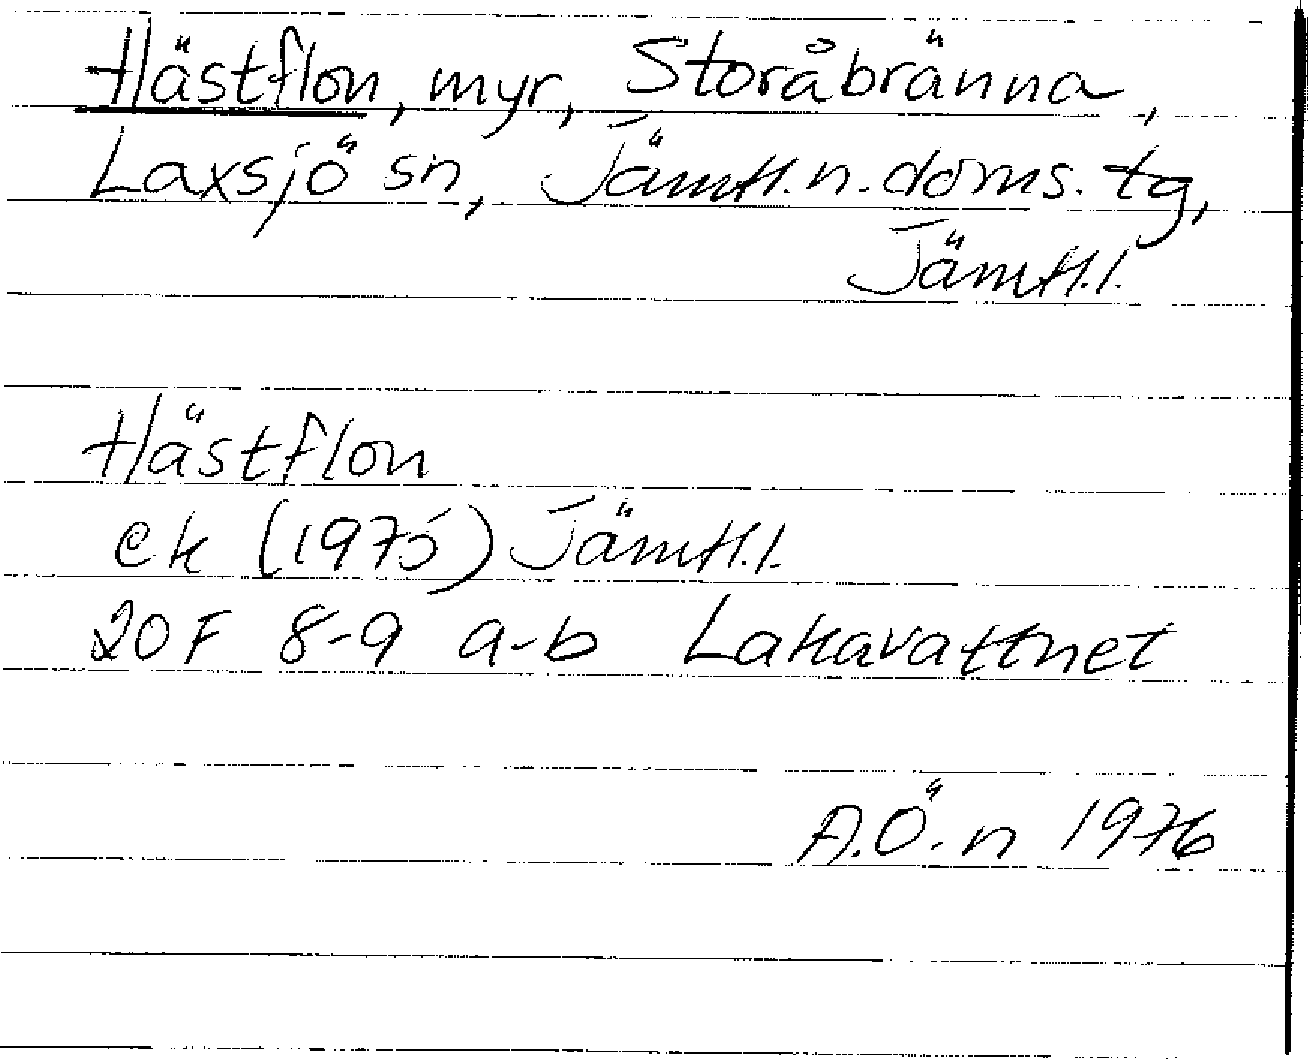 Hästflon, myr, Storåbränna,
Laxsjö sn, Jämtl.n.doms.tg,
Jämtl.l.
Hästflon
ek (1975) Jämtl.l.
20F 8-9 a-b Lakavattnet
A.Ö.n 1976